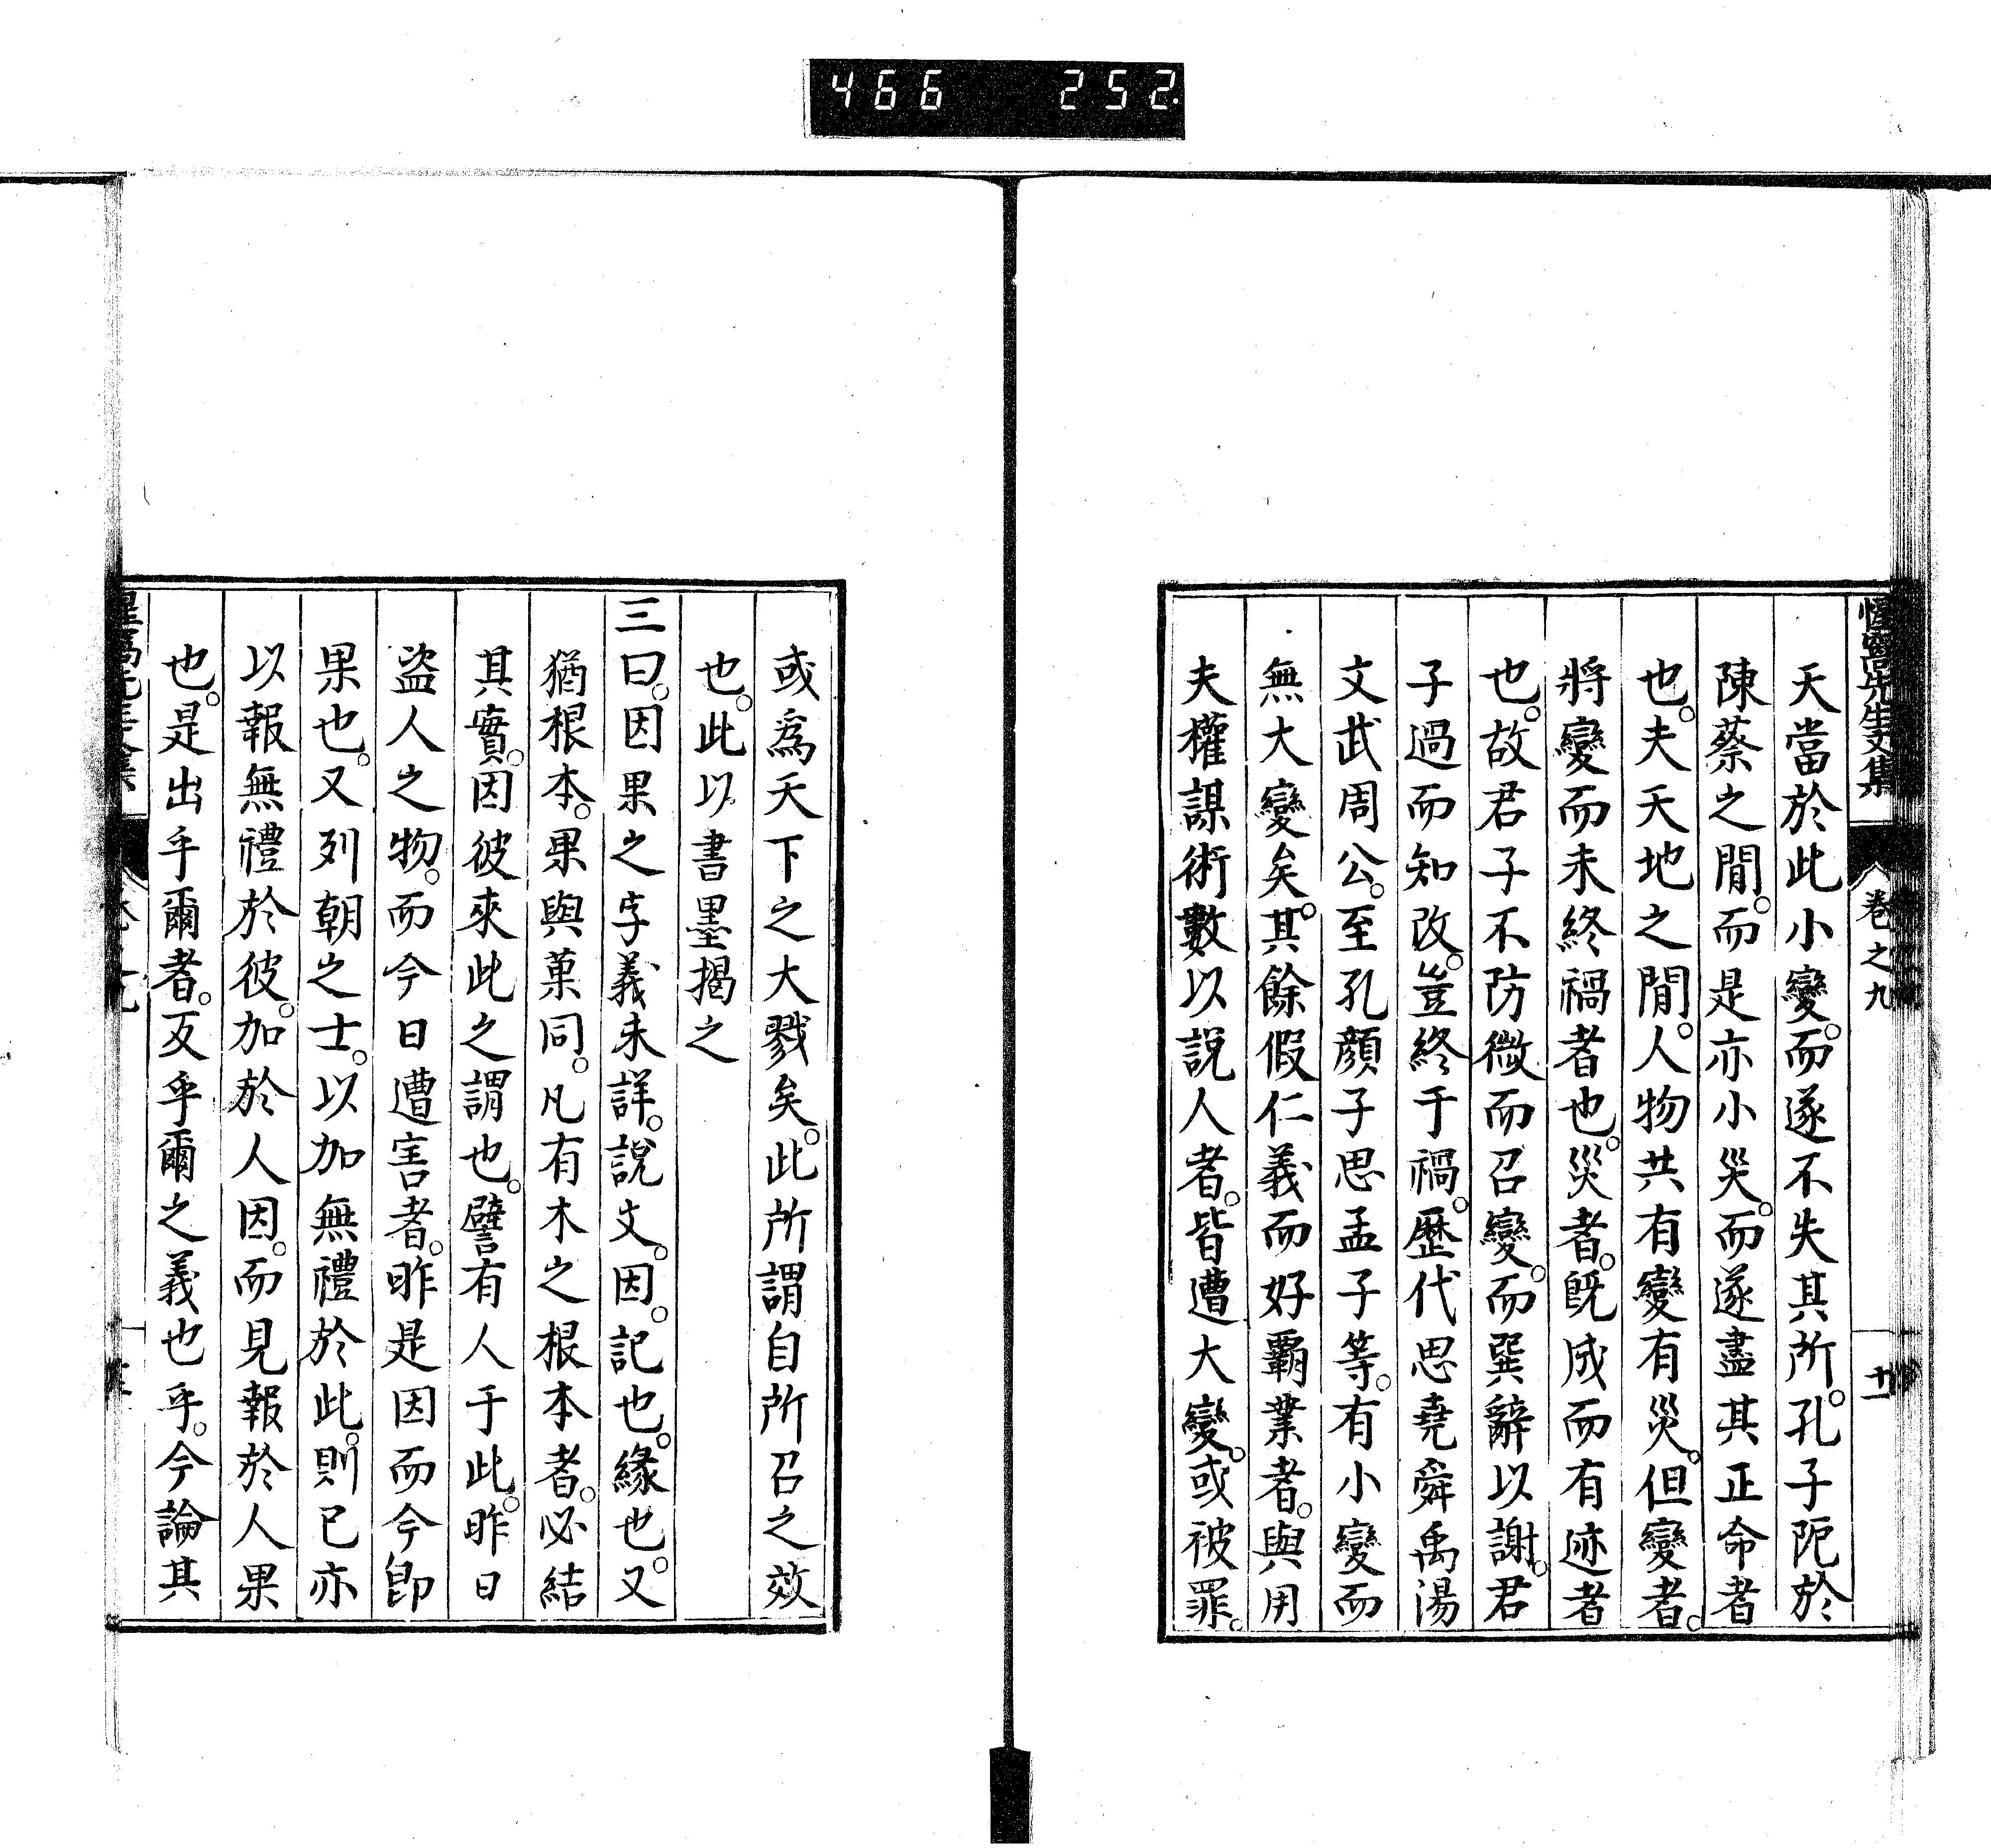 466 252
惺窩先生文集 卷之九 十一
天當於此小變。而遂不失其所。孔子阨於
陳蔡之間。而是亦小災。而遂盡其正命者
也。夫天地之間。人物共有變有災。但變者。
將變而未終禍者也。災者。既成而有迹者
也。故君子不防微而召變。而巽辭以謝。君
子過而知改。豈終于禍。歷代思堯舜禹湯
文武周公。至孔顏子思孟子等。有小變而
無大變矣。其餘假仁義而好霸業者。與用
夫權謀術數以說人者。皆遭大變。或被罪。
或爲天下之大戮矣。此所謂自所召之效
也。此以書墨揭之
三曰。因果之字義未詳。說文。因。記也。緣也。又
猶根本。果與菓同。凡有木之根本者。必結
其實。因彼來此之謂也。譬有人于此。昨日
盜人之物。而今日遭害者。昨是因而今卽
果也。又列朝之士。以加無禮於此。則已亦
以報無禮於彼。加於人因。而見報於人果
也。是出乎爾者。反乎爾之義也乎。今論其